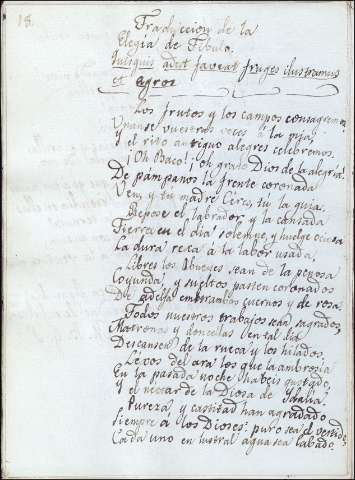 18.
Traduccion de la
Elegia de Tibulo.
Quisquis adest faveat fruges ilustramus
et agros
Los frutos y los campos consagremos
Unanse vuestras voces a la mia,
y el rito antiguo alegres celebremos.
¡Oh Baco! ¡oh grato Dios de la alegría!
De pámpanos la frente coronada
Ven y tu madre Ceres, tu la guia.
Repose el labrador, y la cansada
Tierra en el dia solemne, y huelge ociosa
La dura reca á la labor usada,
Libres los Obueyes sean de la penosa
Coyunda, y sueltos pasten coronados
De adelfa embos cuernos y de rosa.
Todos vuestros trabajos sean sagrados,
Matronas y doncellas en tal dia
Descansen de la rueca y los hilados.
Lexos del ara los que la ambrosia
En la pasada noche habeis gustado,
Y el nectar de la Diosa de Idalia,
Pureza, y castidad han agradado
Siempre a los Dioses: puro sea el vestido,
Cada uno en lustral agua sea labado.